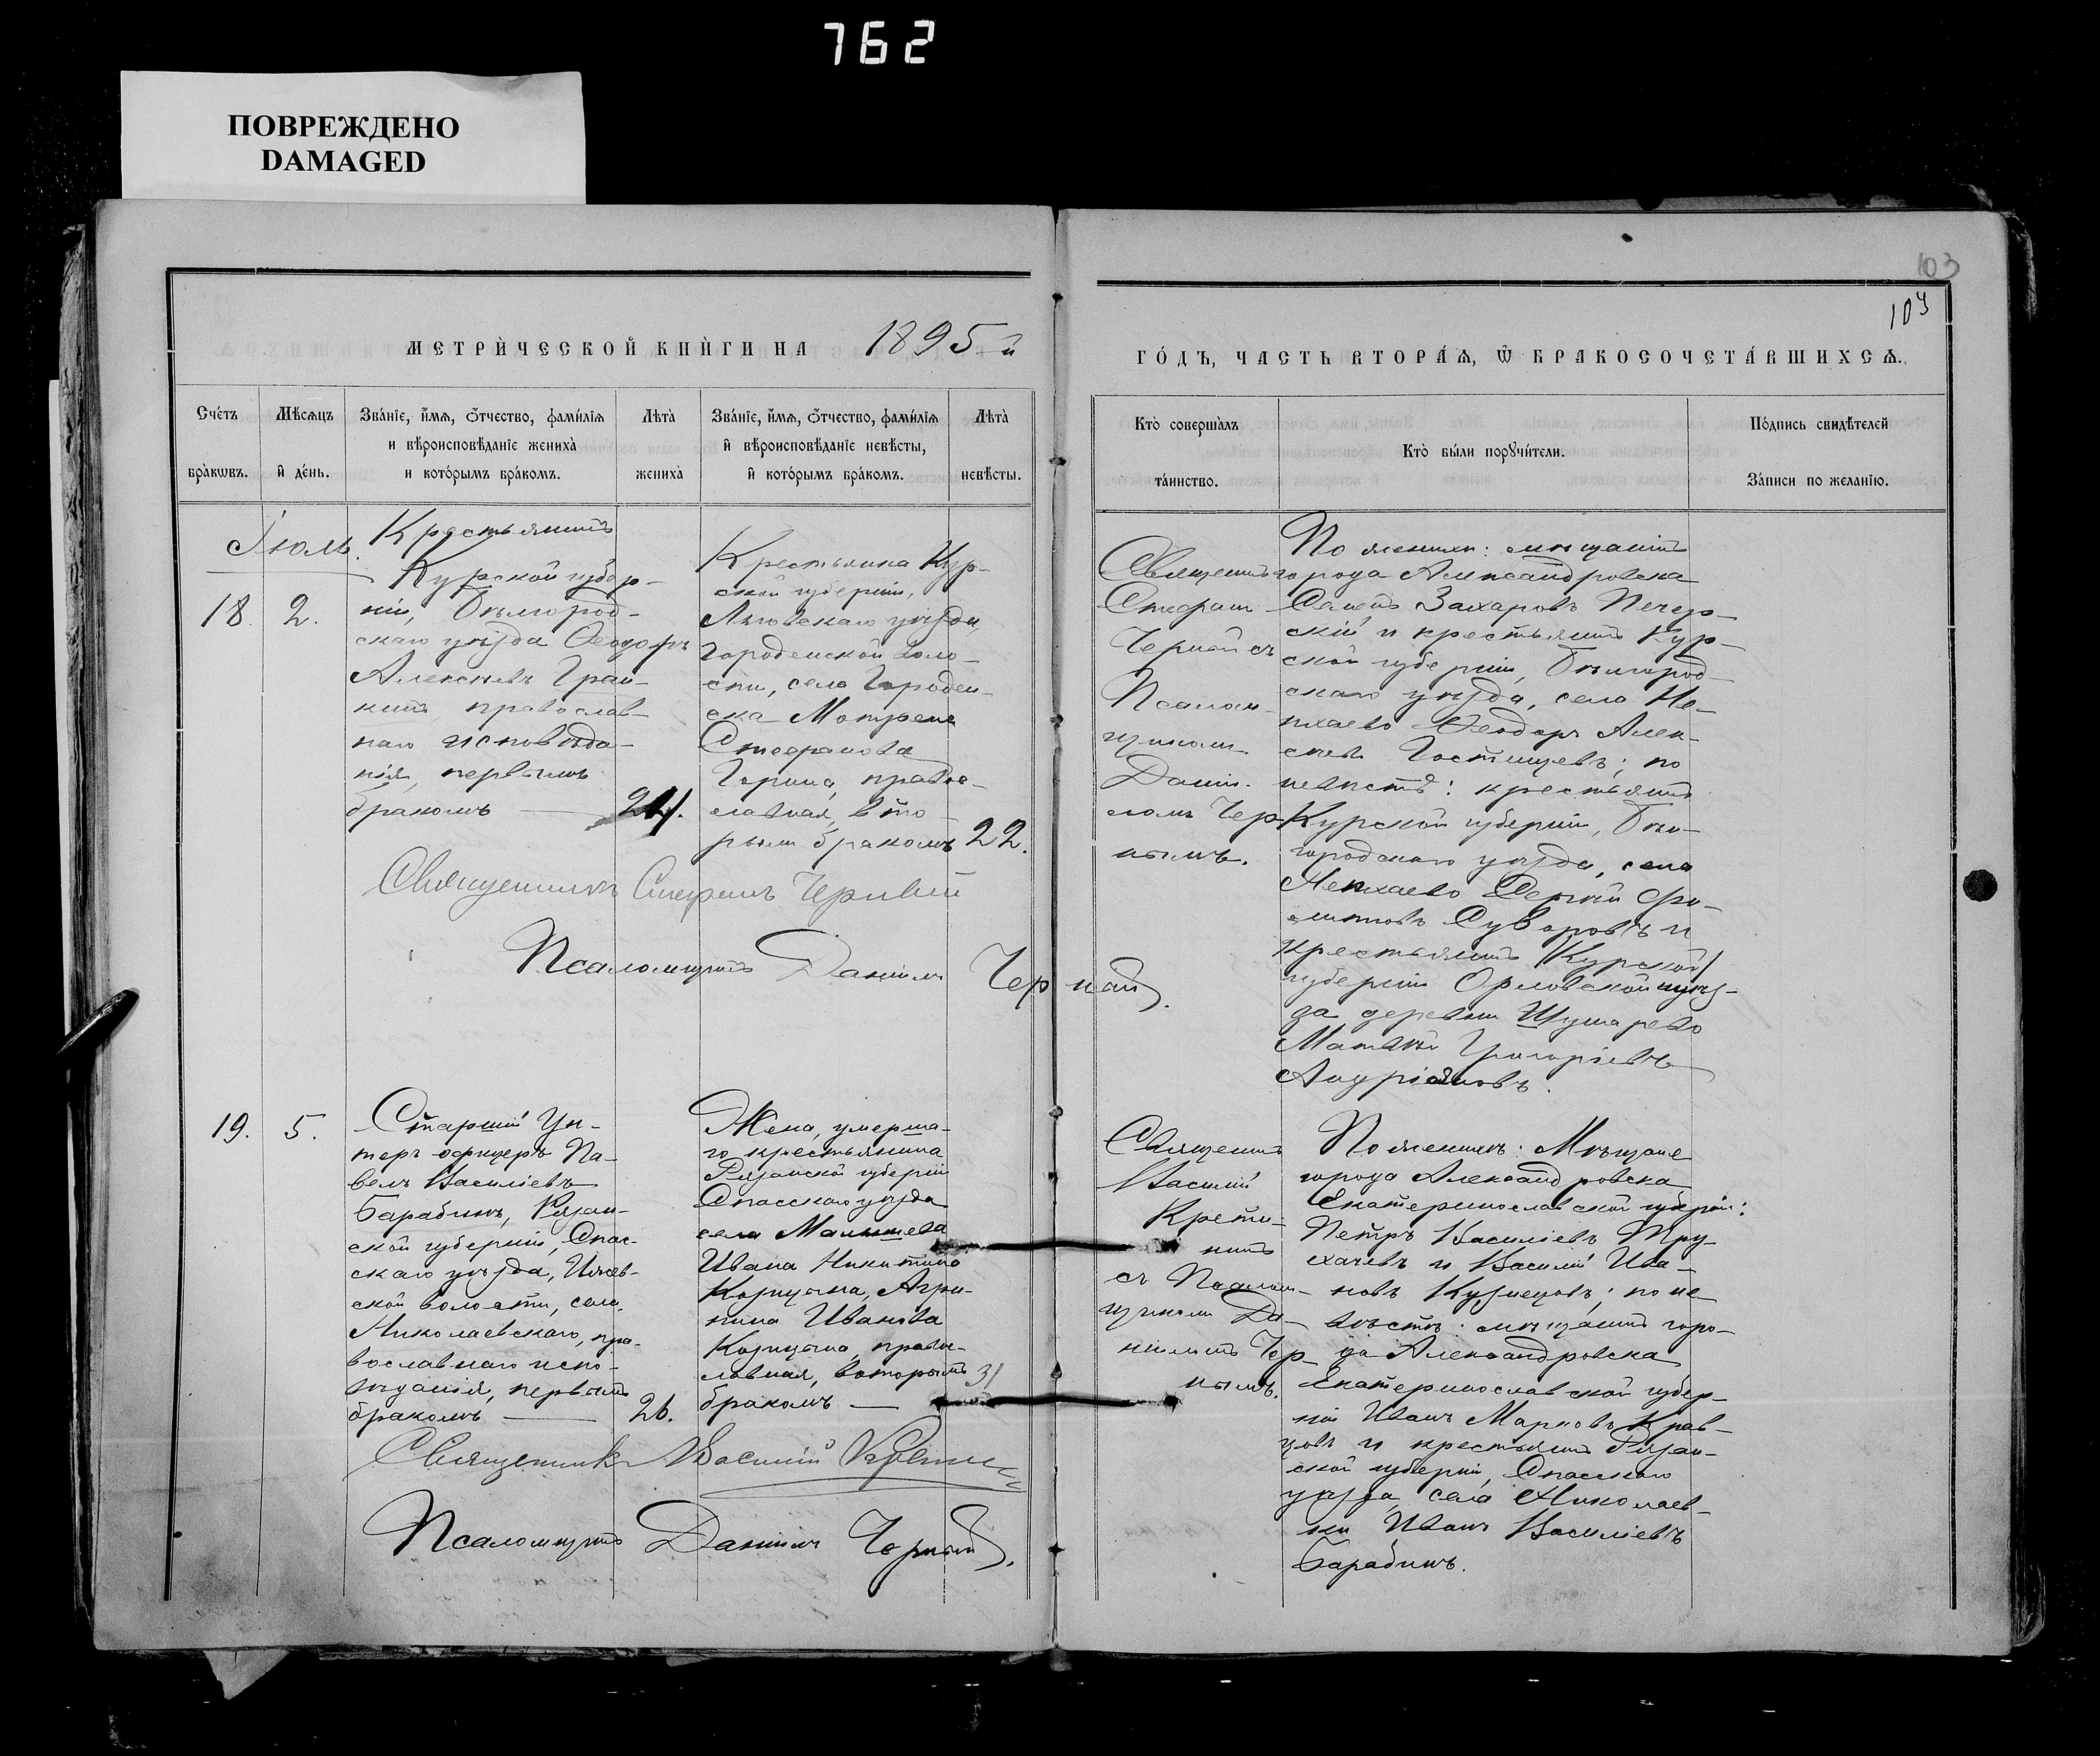 762
ПОВРЕЖДЕНО
DAMAGED
103
103
МЕТРИ́ЧЕСКОЙ КНИ́ГИ НА 1895-й
ГО́ДЪ, ЧАСТЬ ВТОРА́Ѧ, Ѿ БРАКОСОЧЕТА́ВШИХСѦ.
Сче́тъ бра́кѡвъ.
Мѣ́сѧцъ и́ де́нь.
Зва́нїе, и́мѧ, ѻ́тчество, фами́лїѧ
и вѣроисповѣ́данїе жениха̀
и кото́рымъ бра́комъ.
Лѣта̀ жениха̀
Зва́нїе, и́мѧ, ѻ́тчество, фами́лїѧ
и́ вѣроисповѣ́данїе невѣ́сты,
и́ кото́рымъ бра́комъ.
Лѣта̀ невѣ́сты.
Кто̀ соверша́лъ та́инство.
Кто̀ бы́ли порꙋчи́тели.
По́дпись свидѣ́телей
За́писи по жела́нїю.
Іюль.
18. 2.
Крестьянинъ
Курской губер-
ніи, Бѣлгород-
скаго уѣзда Ѳеодоръ
Алексѣевъ
православ-
наго исповѣда-
нія, первымъ
бракомъ — 24.
Крестьянка Кур-
ской губерніи,
Льговскаго уѣзда
Городенской воло-
сти, села Городен-
ска Матрена
Стефанова
Горина, правос-
лавная, вто-
рымъ бракомъ 22.
Священникъ Стефанъ Черный
Псаломщикъ Даніилъ Черный.
Священникъ
Стефанъ
Черный съ
Псалом-
щикомъ
Дані-
ломъ Чер-
нымъ.
По женихѣ: мѣщанинъ
города Александровска
Семенъ Захаровъ Печер-
скій и крестьянинъ Кур-
ской губерніи, Бѣлгород-
скаго уѣзда, села Не-
пхаево Ѳеодоръ Алек-
сѣевъ Гостищевъ; по
невѣстѣ: крестьянинъ
Курской губерніи, Бѣл-
городскаго уѣзда, села
Непхаево Сергѣй
Суворовъ и
крестьянинъ Курской
губерніи Орловской уѣз-
да деревни
Матвѣй Григоріевъ
Андріяновъ.
19. 5.
Старшій Ун-
теръ офицеръ Па-
велъ Василіевъ
Барабинъ, Рязан-
ской губерніи, Спас-
скаго уѣзда, Ижев-
ской волости, села
Николаевскаго, пра-
вославнаго испо-
вѣданія, первымъ
бракомъ — 26.
Жена, умерша-
го крестьянина
Рязанской губерніи
Спасскаго уѣзда
села Малышева
Ивана Никитина
Корицына, Агри-
пина Иванова
Корицына, правос-
лавная, вторымъ 31
бракомъ —
Священникъ Василій
Псаломщикъ Даніилъ Черный.
Священникъ
Василій
Крети-
нинъ
съ Псалом-
щикомъ Да-
ніиломъ Чер-
нымъ.
По женихѣ: Мѣщане
города Александровска
Екатеринославской губерніи:
Петръ Василіевъ Тру-
хачевъ и Василій Ива-
новъ Кузнецовъ; по не
вѣстѣ: мѣщанинъ горо-
да Александровска
Екатеринославской губер-
ніи Иванъ Марковъ Крав-
цовъ и крестьянинъ Рязан-
ской губерніи, Спасскаго
уѣзда, села Николаев-
ки Иванъ Василіевъ
Барабинъ.